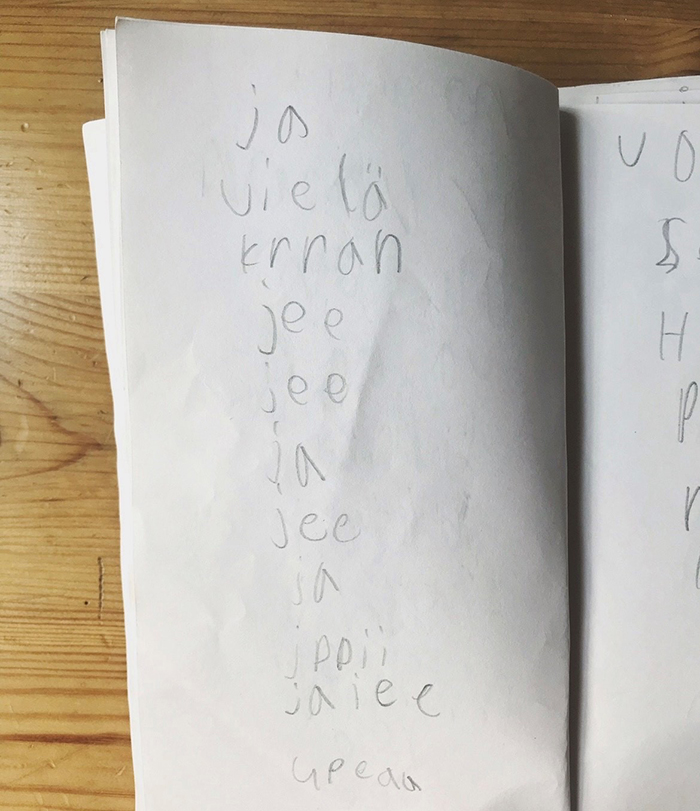 ja
vielä
krran
jee
jee
ja
jee
ja
jppii
jaiee
upeaa
vo
H
P